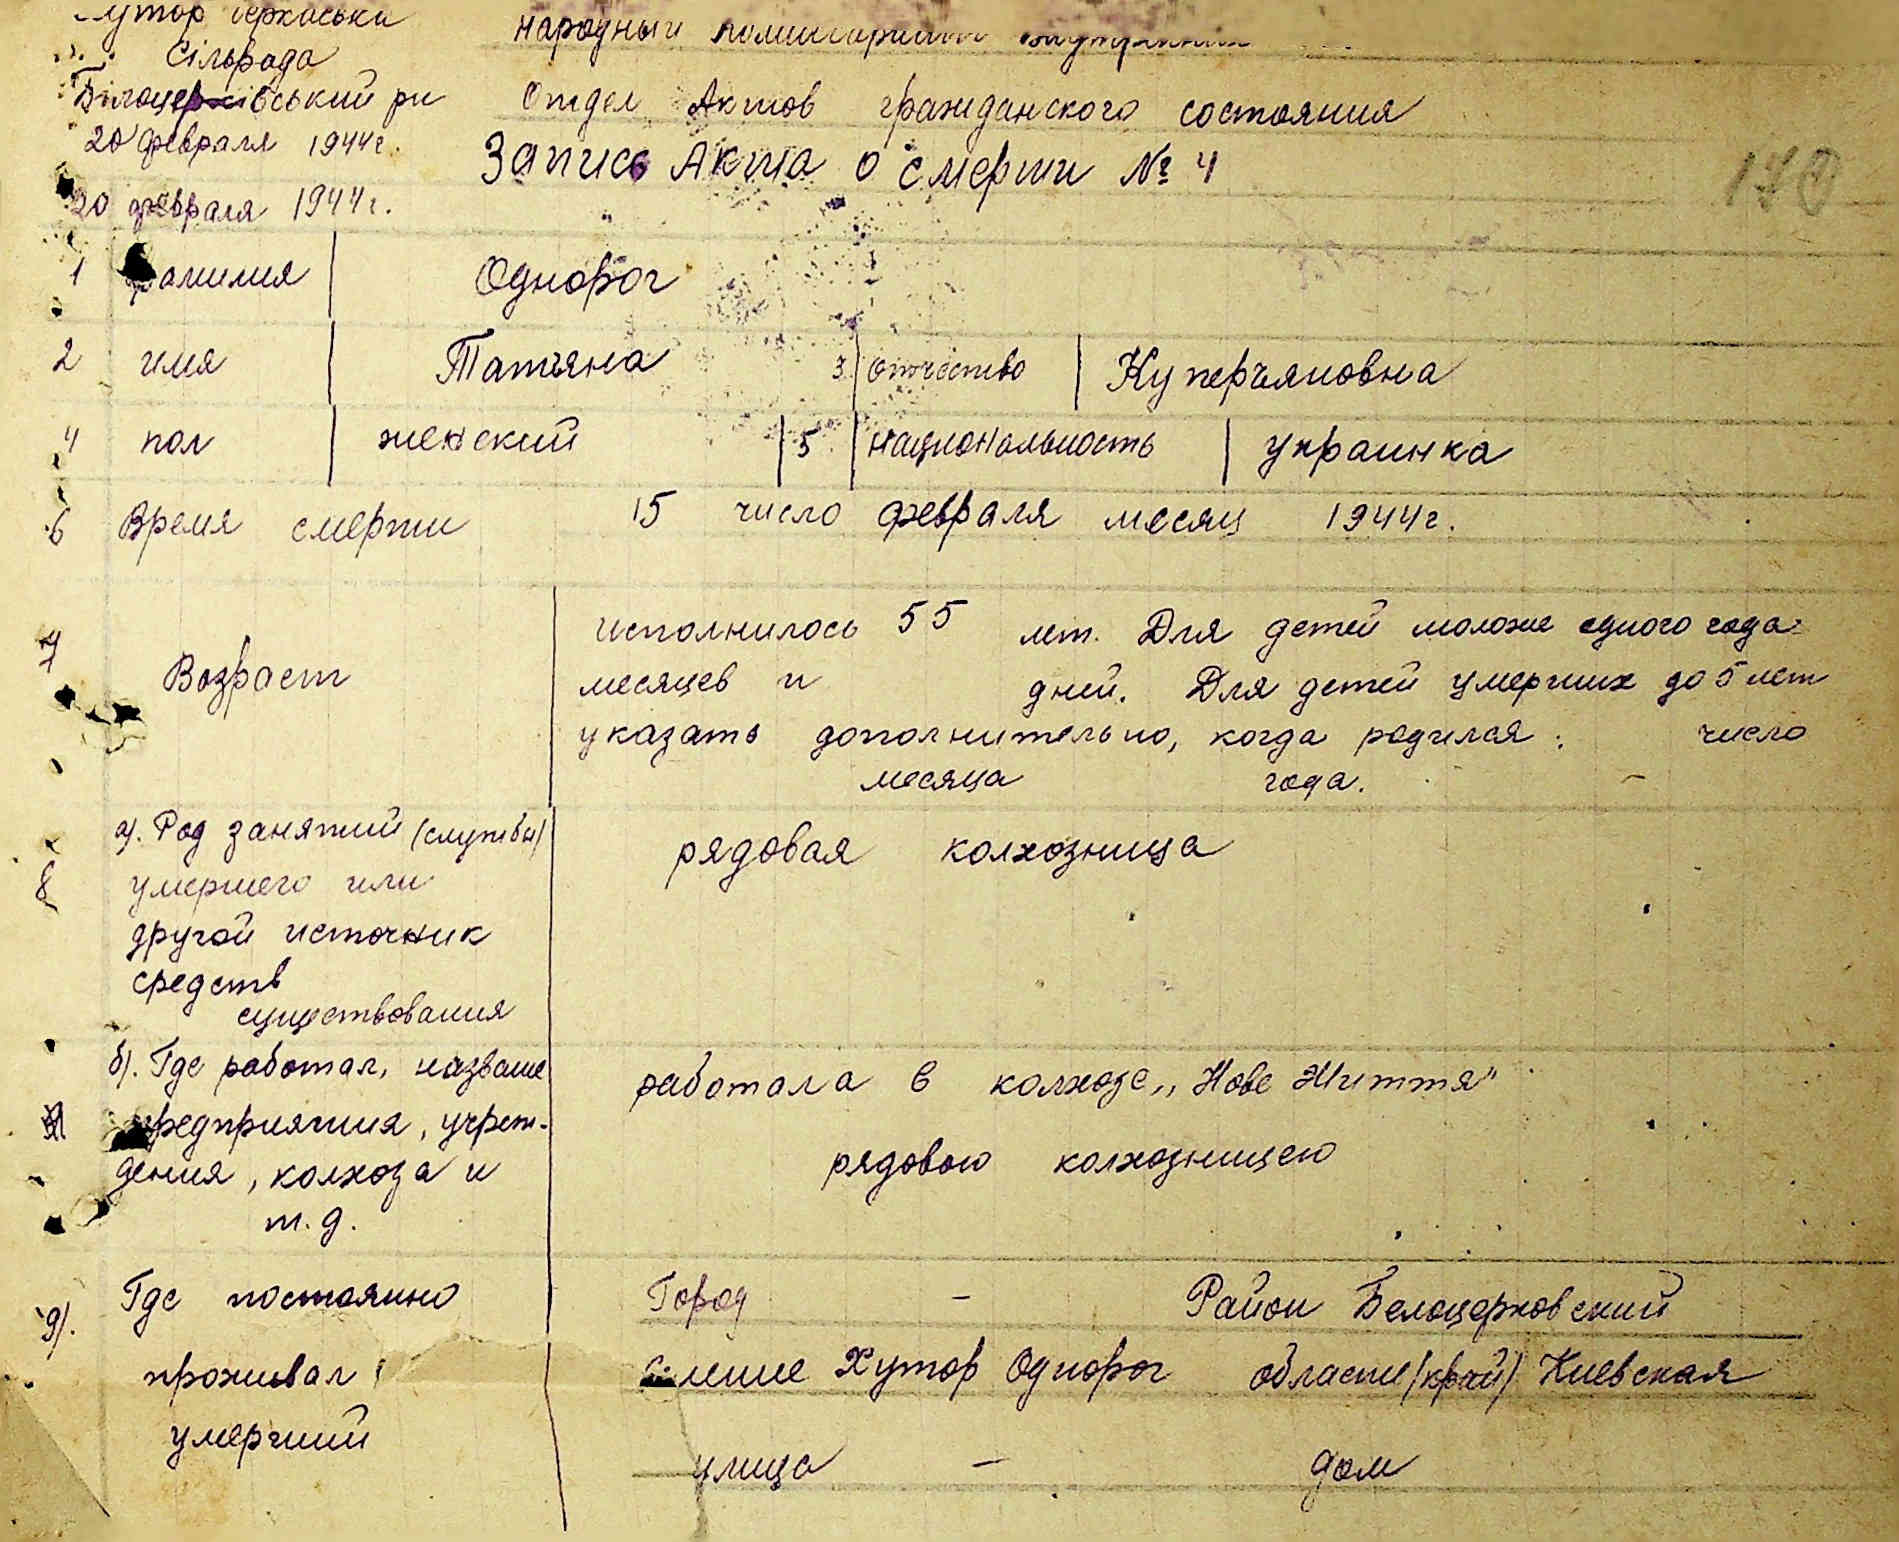 Хутор Черкаська
Сільрада
Білоцерківський рн
20 февраля 1944г.
20 февраля 1944г.
народный комиссариат внутренних
Отдел Актов гражданского состояния
Запись Акта о смерти № 4
170
1 фамилия Однорог
2 имя Татьяна 3. отчество Куперьяновна
4 пол женский 5. национальность украинка
6 Время смерти 15 число февраля месяц 1944г.
7 Возраст
исполнилось 55 лет. Для детей моложе одного года:
месяцев и дней. Для детей умерших до 5 лет
указать дополнительно, когда родился: число
месяца года. –
8 а). Род занятий /службы/
умершего или
другой источник
средств
существования
рядовая колхозница
б). Где работал, название
предприятия, учреж-
дения, колхоза и
т.д.
работала в колхозе „Нове Життя"
рядовою колхозницею
9). Где постоянно
проживал
умерший
Город – Район Белоцерковский
селение Хутор Однорог область /край/ Киевская
улица – дом